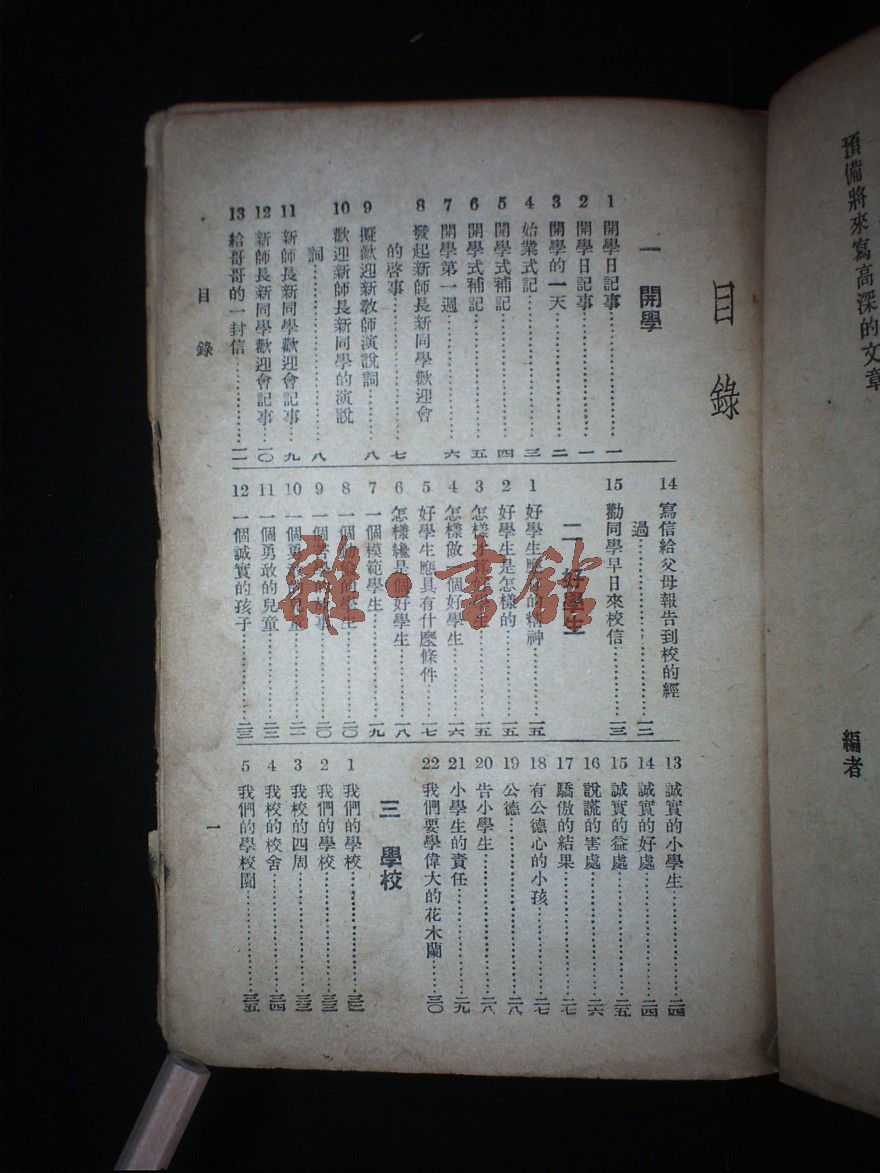 預備將來寫高深的文章
編者
目錄
一 開學
1 開學日記事……一
2 開學日記事……一
3 開學的一天……二
4 始業式記……三
5 開學式補記……四
6 開學式補記……五
7 開學第一週……六
8 發起新師長新同學歡迎會
的啓事……七
9 擬歡迎新教師演說詞……八
10 歡迎新師長新同學的演說
詞……八
11 新師長新同學歡迎會記事……九
12 新師長新同學歡迎會記事……一〇
13 給哥哥的一封信……一一
14 寫信給父母報告到校的經
過……一二
15 勸同學早日來校信……一三
二 好學生
1 好學生應有的精神……一五
2 好學生是怎樣的……一五
3 怎樣才算好學生……一五
4 怎樣做一個好學生……一六
5 好學生應具有什麼條件……一七
6 怎樣纔是個好學生……一八
7 一個模範學生……一九
8 一個勤儉的學生……二〇
9 一個苦學的故事……二〇
10 一個勇敢的兒童……二一
11 一個勇敢的兒童……二二
12 一個誠實的孩子……二三
13 誠實的小學生……二四
14 誠實的好處……二四
15 誠實的益處……二五
16 說謊的害處……二六
17 驕傲的結果……二七
18 有公德心的小孩……二七
19 公德……二八
20 告小學生……二八
21 小學生的責任……二九
22 我們要學偉大的花木蘭……三〇
三 學校
1 我們的學校……三二
2 我們的學校……三三
3 我校的四周……三三
4 我校的校舍……三四
5 我們的學校園……三五
目錄
一
雜·書館